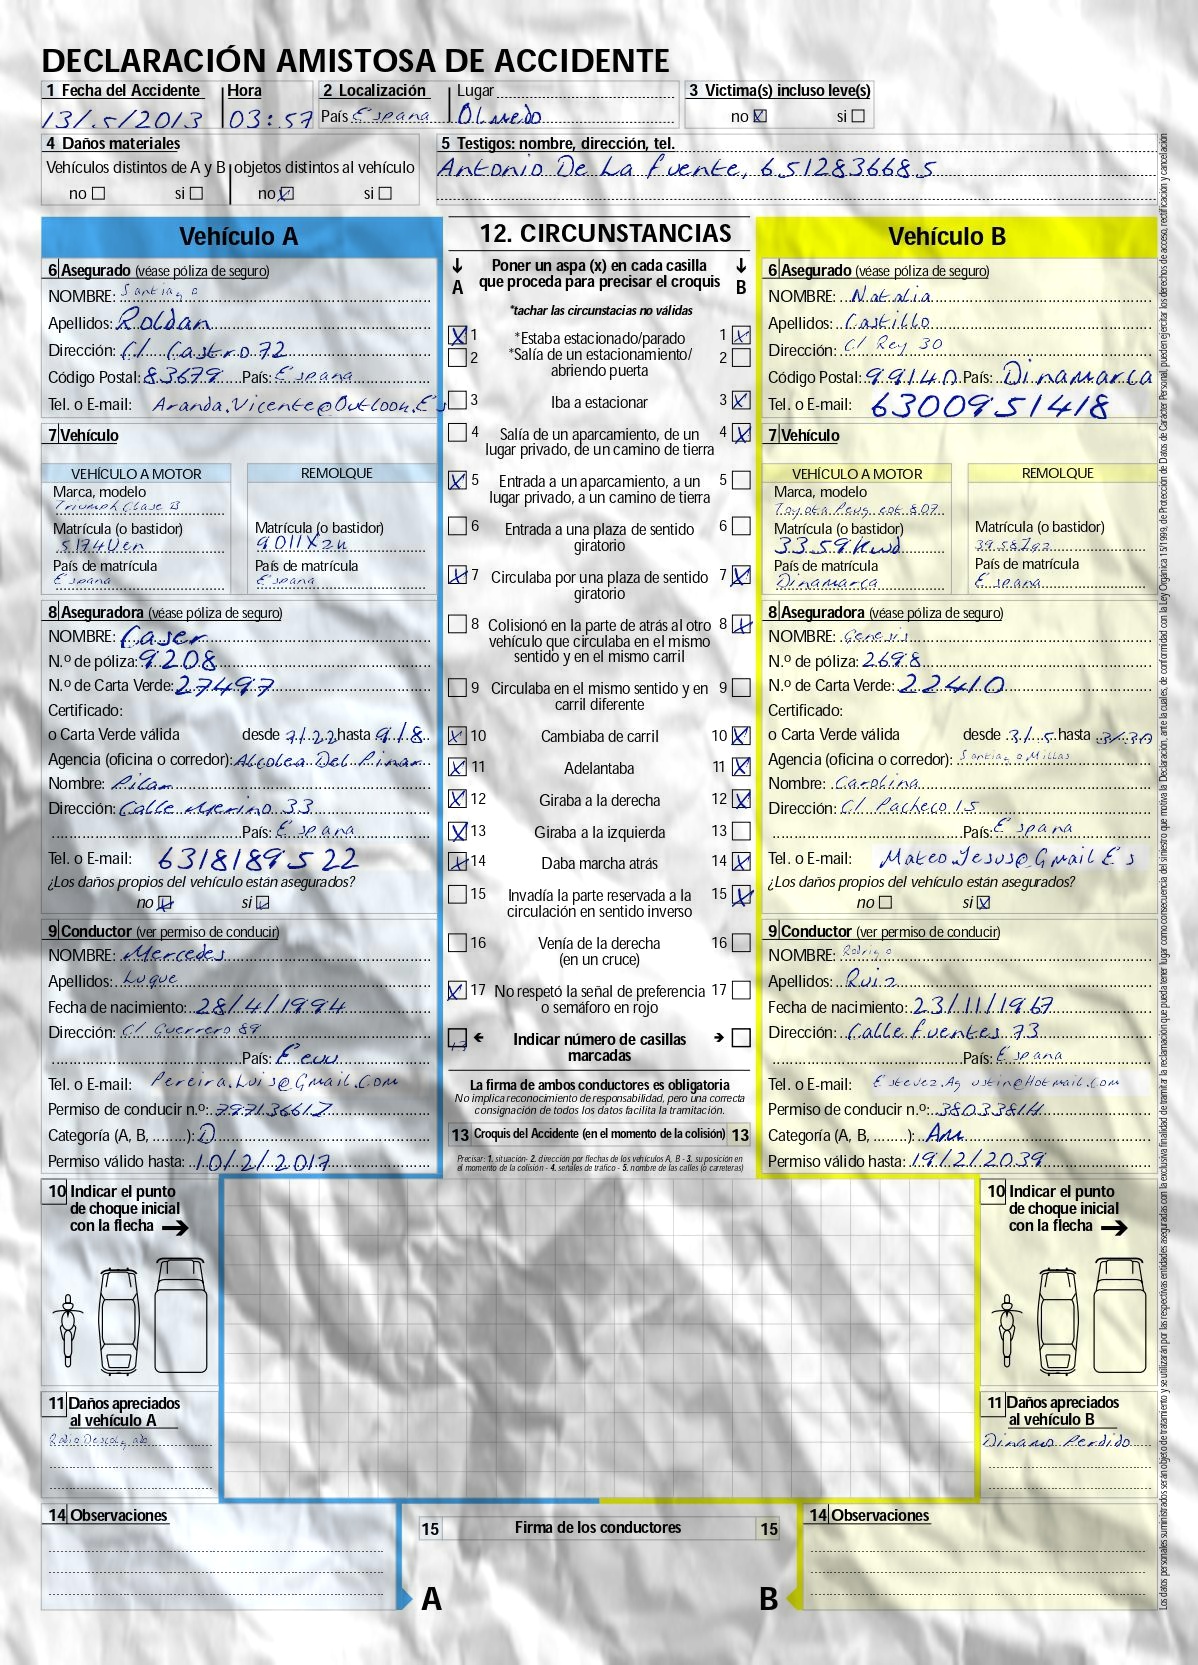 DECLARACIÓN AMISTOSA DE ACCIDENTE
1 Fecha del Accidente Hora 2 Localización Lugar 3 Victima(s) incluso leve(s)
13/5/2013 03:57 País Espana Olmedo no si
4 Daños materiales 5 Testigos: nombre, dirección, tel.
Vehículos distintos de A y B objetos distintos al vehículo Antonio De La fuente, 6512836685
no si no si
Vehículo A
6 Asegurado (véase póliza de seguro)
NOMBRE: Santiago
Apellidos: Roldan
Dirección: C/ Castro 72
Código Postal: 83679 País: Espana
Tel. o E-mail: Aranda.Vicente@Outlook.Es
7 Vehículo
VEHÍCULO A MOTOR REMOLQUE
Marca, modelo
Triumph Clase B
Matrícula (o bastidor) Matrícula (o bastidor)
5174Uen 9011Xzn
País de matrícula País de matrícula
Espana Espana
8 Aseguradora (véase póliza de seguro)
NOMBRE: Caser
N.º de póliza: 9208
N.º de Carta Verde: 27497
Certificado:
o Carta Verde válida desde 7/22 hasta 9/8
Agencia (oficina o corredor): Alcolea Del Pinar
Nombre: Pilar
Dirección: Calle Merino 33
País: Espana
Tel. o E-mail: 6318189522
¿Los daños propios del vehículo están asegurados?
no si
9 Conductor (ver permiso de conducir)
NOMBRE: Mercedes
Apellidos: Luque
Fecha de nacimiento: 28/4/1994
Dirección: C/ Guerrero 89
País: Eeuu
Tel. o E-mail: Pereira.Luis@Gmail.Com
Permiso de conducir n.º: 79713661Z
Categoría (A, B, ........): D
Permiso válido hasta: 10/2/2017
12. CIRCUNSTANCIAS
A Poner un aspa (x) en cada casilla que proceda para precisar el croquis B
*tachar las circunstacias no válidas
1 *Estaba estacionado/parado 1
2 *Salía de un estacionamiento/ 2
abriendo puerta
3 Iba a estacionar 3
4 Salía de un aparcamiento, de un 4
lugar privado, de un camino de tierra
5 Entrada a un aparcamiento, a un 5
lugar privado, a un camino de tierra
6 Entrada a una plaza de sentido 6
giratorio
7 Circulaba por una plaza de sentido 7
giratorio
8 Colisionó en la parte de atrás al otro 8
vehículo que circulaba en el mismo
sentido y en el mismo carril
9 Circulaba en el mismo sentido y en 9
carril diferente
10 Cambiaba de carril 10
11 Adelantaba 11
12 Giraba a la derecha 12
13 Giraba a la izquierda 13
14 Daba marcha atrás 14
15 Invadía la parte reservada a la 15
circulación en sentido inverso
16 Venía de la derecha 16
(en un cruce)
17 No respetó la señal de preferencia 17
o semáforo en rojo
Indicar número de casillas
marcadas
La firma de ambos conductores es obligatoria
No implica reconocimiento de responsabilidad, pero una correcta
consignación de todos los datos facilita la tramitación.
13 Croquis del Accidente (en el momento de la colisión) 13
Precisar: 1. situación- 2. dirección por flechas de los vehículos A, B - 3. su posición en
el momento de la colisión - 4. señales de tráfico - 5. nombre de las calles (o carreteras)
Vehículo B
6 Asegurado (véase póliza de seguro)
NOMBRE: Natalia
Apellidos: Castillo
Dirección: C/ Rey 30
Código Postal: 99140 País: Dinamarca
Tel. o E-mail: 6300951418
7 Vehículo
VEHÍCULO A MOTOR REMOLQUE
Marca, modelo
Toyota Peugeot 807
Matrícula (o bastidor) Matrícula (o bastidor)
3359Kwd 3958Zgz
País de matrícula País de matrícula
Dinamarca Espana
8 Aseguradora (véase póliza de seguro)
NOMBRE: Genesis
N.º de póliza: 2698
N.º de Carta Verde: 22410
Certificado:
o Carta Verde válida desde 31/5 hasta 3/30
Agencia (oficina o corredor): Santiago Millas
Nombre: Carolina
Dirección: C/ Pacheco 15
País: Espana
Tel. o E-mail: Mateo.Jesus@Gmail.Es
¿Los daños propios del vehículo están asegurados?
no si
9 Conductor (ver permiso de conducir)
NOMBRE: Rodrigo
Apellidos: Ruiz
Fecha de nacimiento: 23/11/1967
Dirección: Calle Fuentes 73
País: Espana
Tel. o E-mail: Estevez.Agustin@Hotmail.Com
Permiso de conducir n.º: 38033814H
Categoría (A, B, ........): Am
Permiso válido hasta: 19/2/2039
10 Indicar el punto
de choque inicial
con la flecha
11 Daños apreciados
al vehículo A
Radio Descolgado
10 Indicar el punto
de choque inicial
con la flecha
11 Daños apreciados
al vehículo B
Dinamo Perdido
14 Observaciones
15 Firma de los conductores 15
A B
14 Observaciones